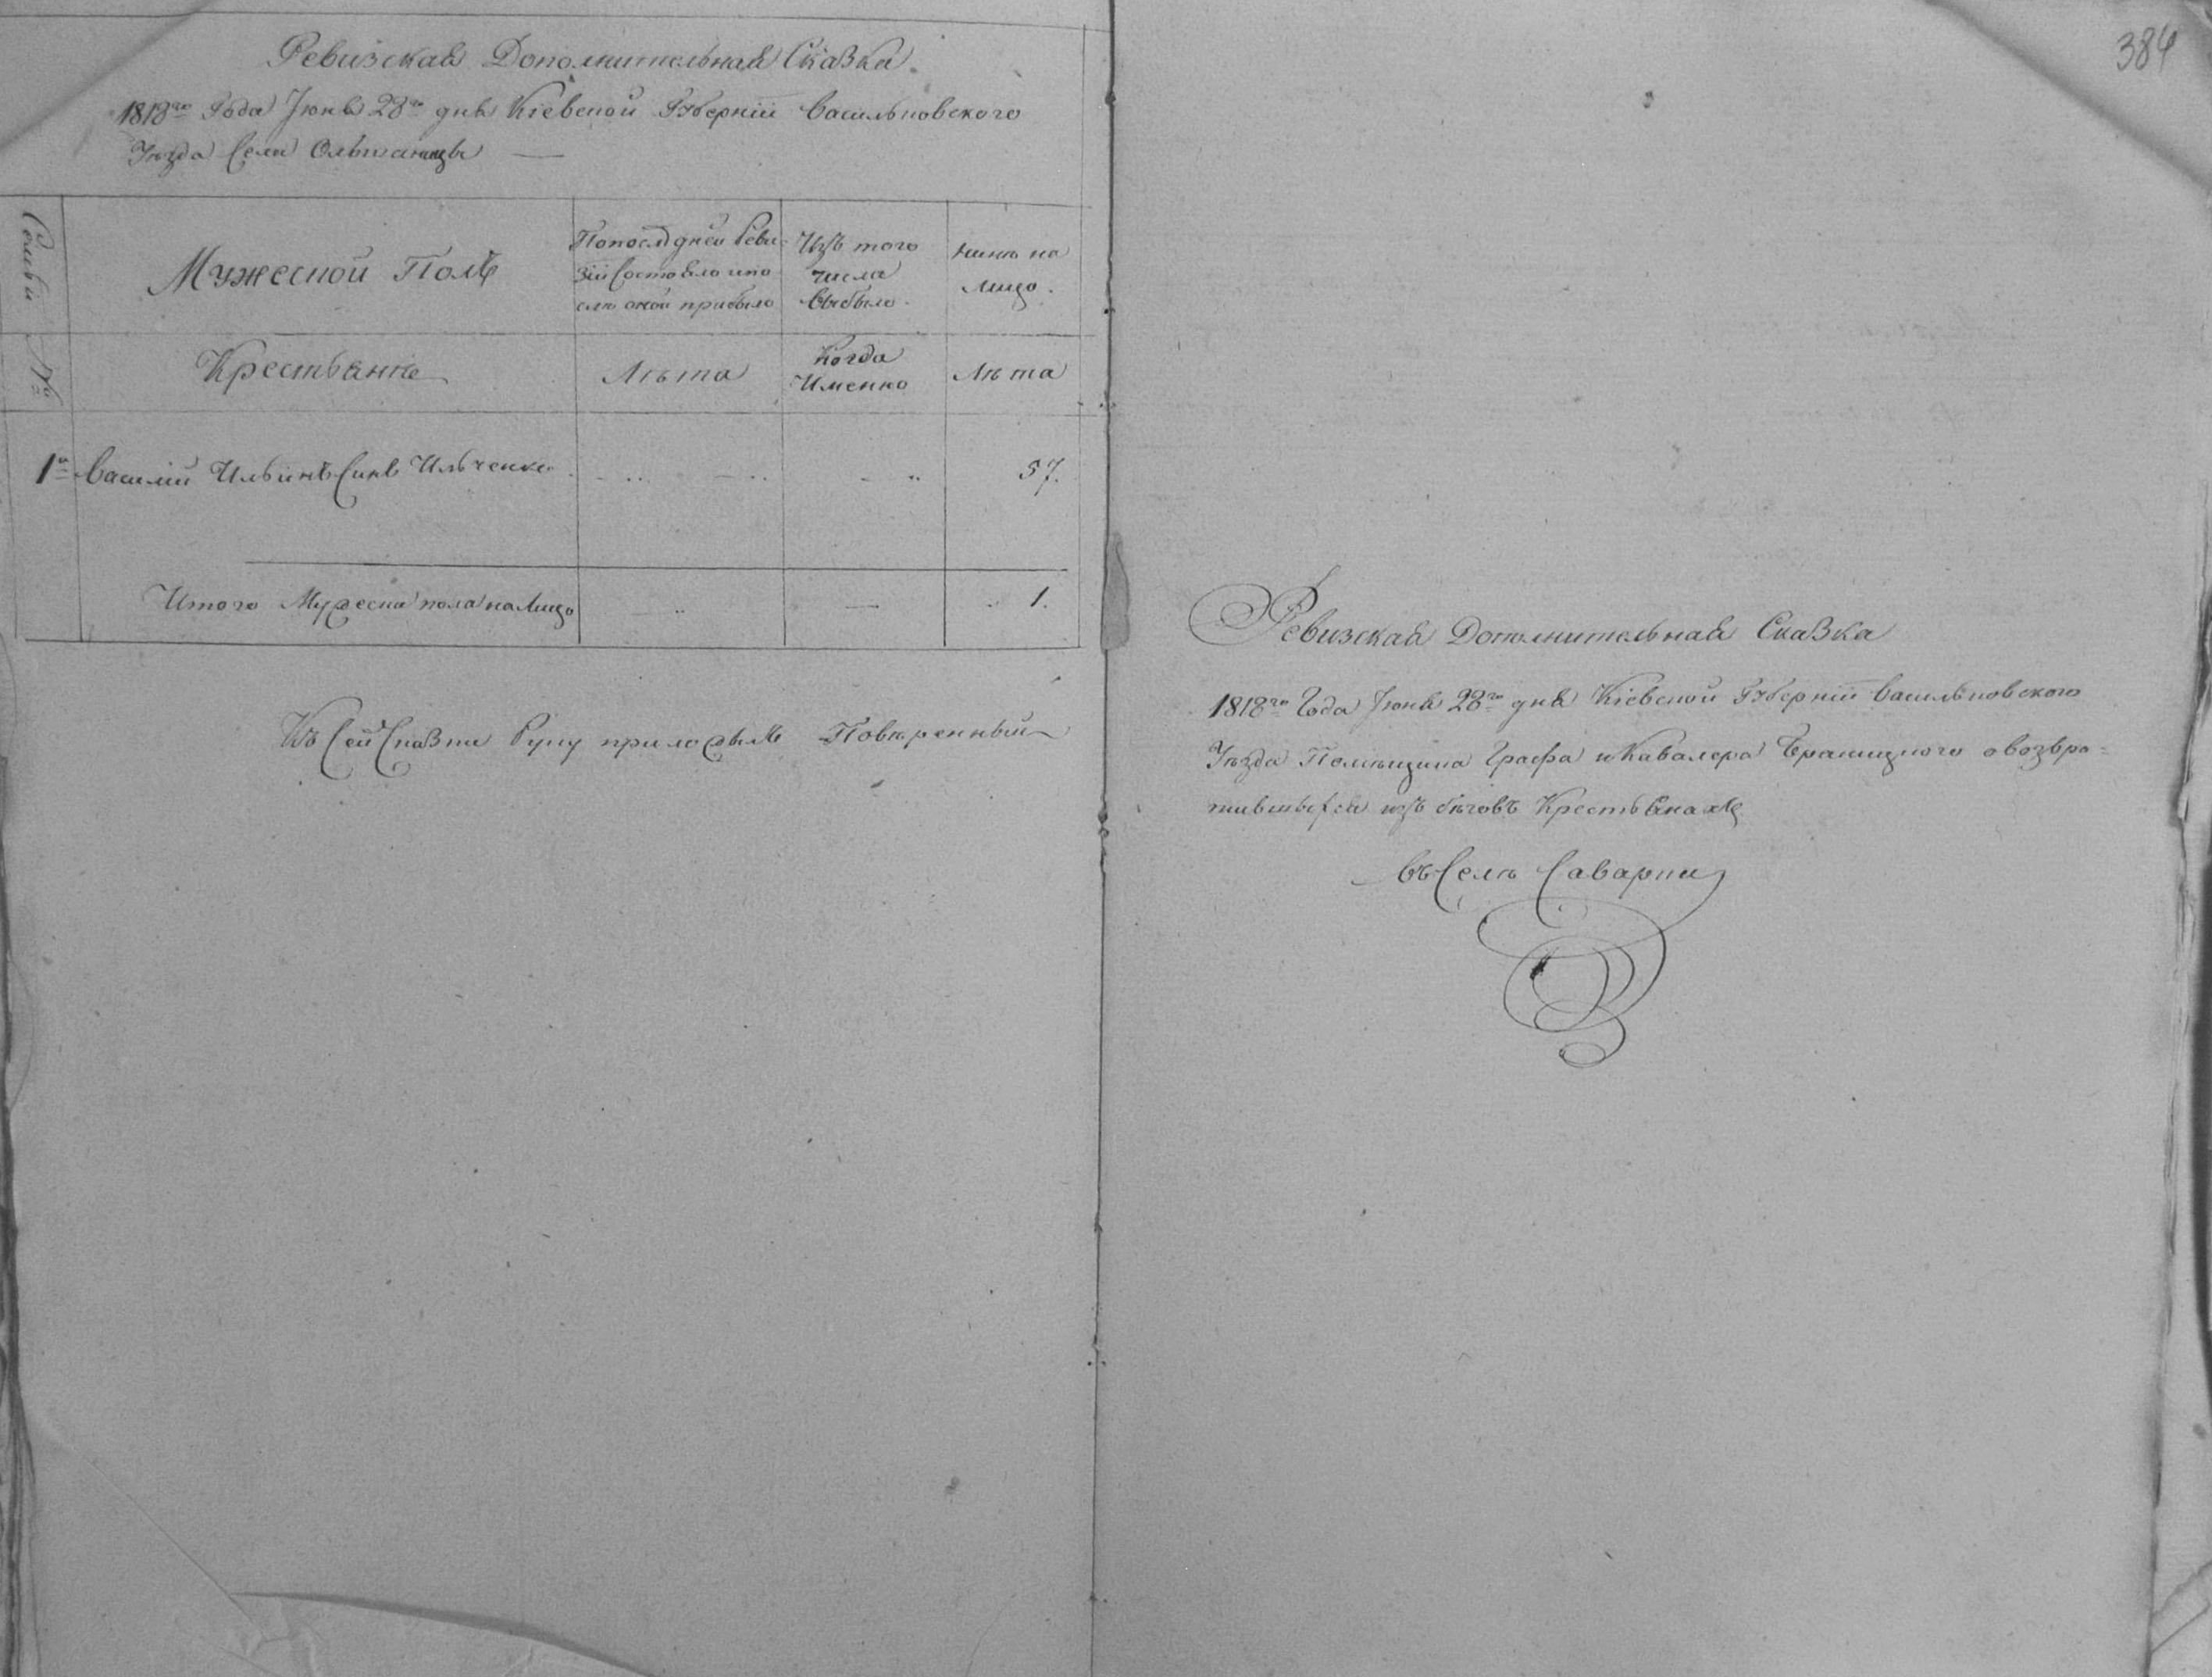 Ревизская Дополнительная Сказка.
1818го Года Июня 28го дня Кіевской Губерніи Васильковского
Уезда Села Ольшаницы —
Семьи №
Мужеской Полъ
Попоследней Реви-
зіи Состояло ипо
сле оной прибыло
Изъ того
числа
Выбыло.
ныне на
лицо.
Крестьяне
Лета
Когда
Именно
Лета
1я Василій Ильинъ Синъ Ильченко 57.
Итого Мужеска пола на Лицо 1.
Къ Сей Сказки Руку приложылъ Поверенный
384
Ревизская Дополнительная Сказка
1818го Года Июня 28го дня Кіевской Губерніи Васильковского
Уезда Помещика Графа и Кавалера Браницкого овозвра=
тившыхся изъ беговъ Крестьянахъ
въ Селе Саварки